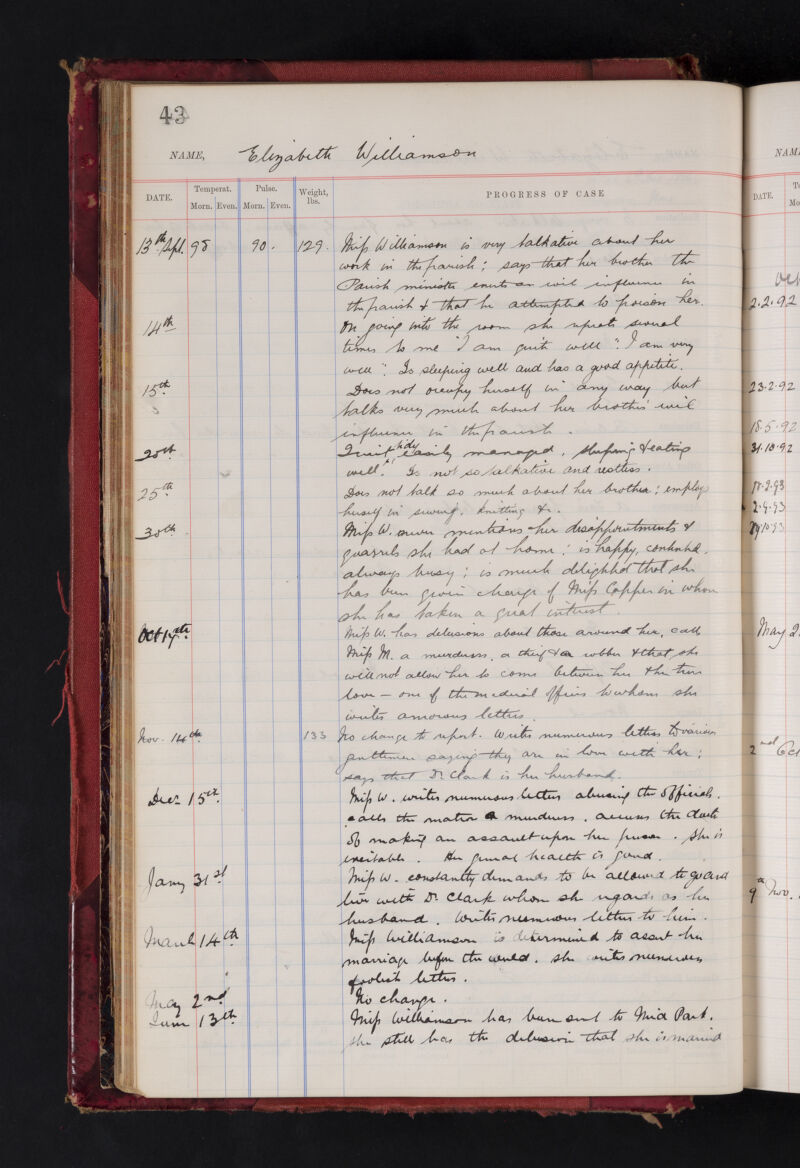 43
NAME, Elizabeth Williamson
DATE. Temperat. Pulse. Weight, lbs. PROGRESS OF CASE
Morn. Even. Morn. Even.
13th Sept. 98 90. 129. Miss Williamson is very talkative about her
work in the parish; says that her brother the
Parish minister exerts an evil influence in
the parish & that he attempted to poison her.
14th On going into the room she repeats several
times to me "I am quite well": "I am very
well". Is sleeping well and has a good appetite.
15th Does not occupy herself in any way but
talks very much about her brother's evil
influence in the parish.
20th Quiet, tidy, easily managed, sleeping & eating
well. Is not so talkative and restless.
25th Does not talk so much about her brother; employs
herself in sewing, knitting &c.
30th. Miss W. never mentions her disappointments &
quarrels she had at home; is happy, contented,
always busy; is much delighted that she
has been given charge of Miss Copper in whom
she has taken a great interest.
Oct 17th Miss W. has delusions about those around her, calls
Miss M. a murderess, a thief & a robber & that she
will not allow her to come between her & her true
love - one of the medical officers to whom she
writes amorous letters.
Nov. 14th. 133 No change to report. Writes numerous letters to various
gentlemen saying they are in love with her;
says that Dr Clark is her husband.
Decr 15th. Miss W. writes numerous letters abusing the officials.
calls the matron a murderess. accuses the
of making an assault upon her person. She is
excitable. Her general health is good.
Jany 31st Miss W. constantly demands to be allowed to go and
live with Dr Clark whom she regards as her
husband. Writes numerous letters to him.
March 14th Miss Williamson is determined to assert her
marriage before the world. She writes numerous
foolish letters.
May 2nd No change.
June 13th Miss Williamson has been sent to Mid Park.
She still has the delusion that she is married
NAM
DATE. T
Mo
Oct
2.2.92
23.2.92
18.5.92
31.10.92
18.2.93
2.9.93
May 2
2nd Oct
9th Nov.